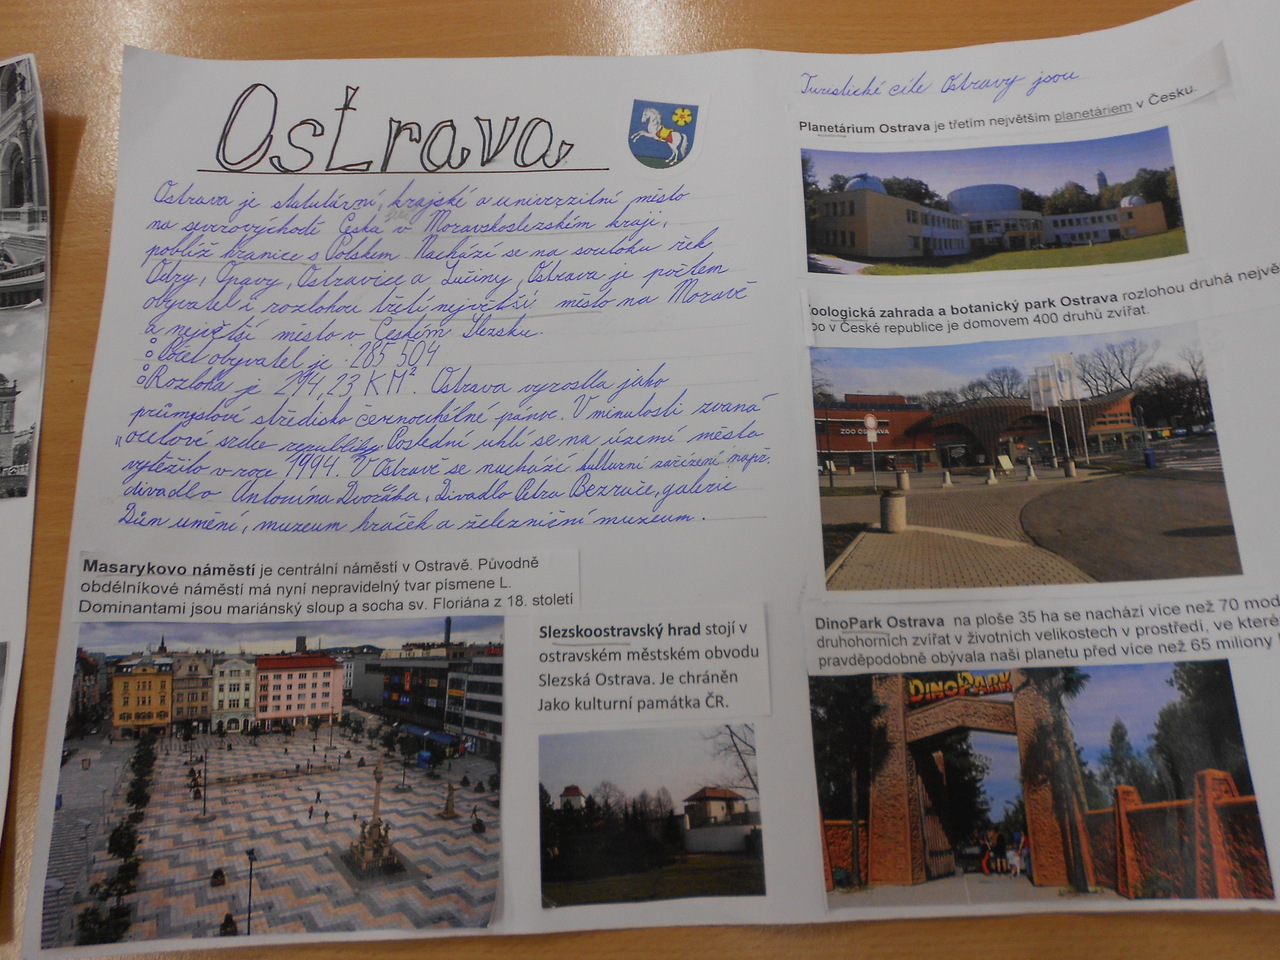 Ostrava
Ostrava je statutární, krajské a univerzitní město
na severovýchodě Česka v Moravskoslezském kraji,
poblíž hranice s Polskem. Nachází se na soutoku řek
Odry, Opavy, Ostravice a Lučiny. Ostrava je počtem
obyvatel i rozlohou třetí největší město na Moravě
a největší město v Českém Slezsku.
Počet obyvatel je 285 504
Rozloha je 214,23 KM². Ostrava vyrostla jako
průmyslové středisko černouhelné pánve. V minulosti zvaná
„ocelové srdce republiky. Poslední uhlí se na území města
vytěžilo v roce 1994. V Ostravě se nachází kulturní zařízení např.
divadlo Antonína Dvořáka, Divadlo Petra Bezruče, galerie
Dům umění, muzeum hraček a železniční muzeum.
Masarykovo náměstí je centrální náměstí v Ostravě. Původně
obdélníkové náměstí má nyní nepravidelný tvar písmene L.
Dominantami jsou mariánský sloup a socha sv. Floriána z 18. století
Slezskoostravský hrad stojí v
ostravském městském obvodu
Slezská Ostrava. Je chráněn
Jako kulturní památka ČR.
Turistické cíle Ostravy jsou
Planetárium Ostrava je třetím největším planetáriem v Česku.
Zoologická zahrada a botanický park Ostrava rozlohou druhá největ
oo v České republice je domovem 400 druhů zvířat.
ZOO OSTRAVA
DinoPark Ostrava na ploše 35 ha se nachází více než 70 mod
druhohorních zvířat v životních velikostech v prostředí, ve které
pravděpodobně obývala naši planetu před více než 65 miliony
DINOPARK